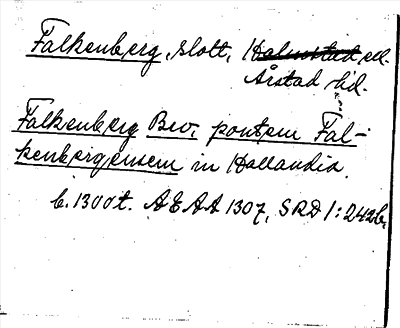 Falkenberg, slott, Halmstad ell.
Årstad hd.
Falkenberg Bev, pontem Fal-
kenbergensem in Hallandia
b. 1300t. AEAA 1307, SRD 1:242b.